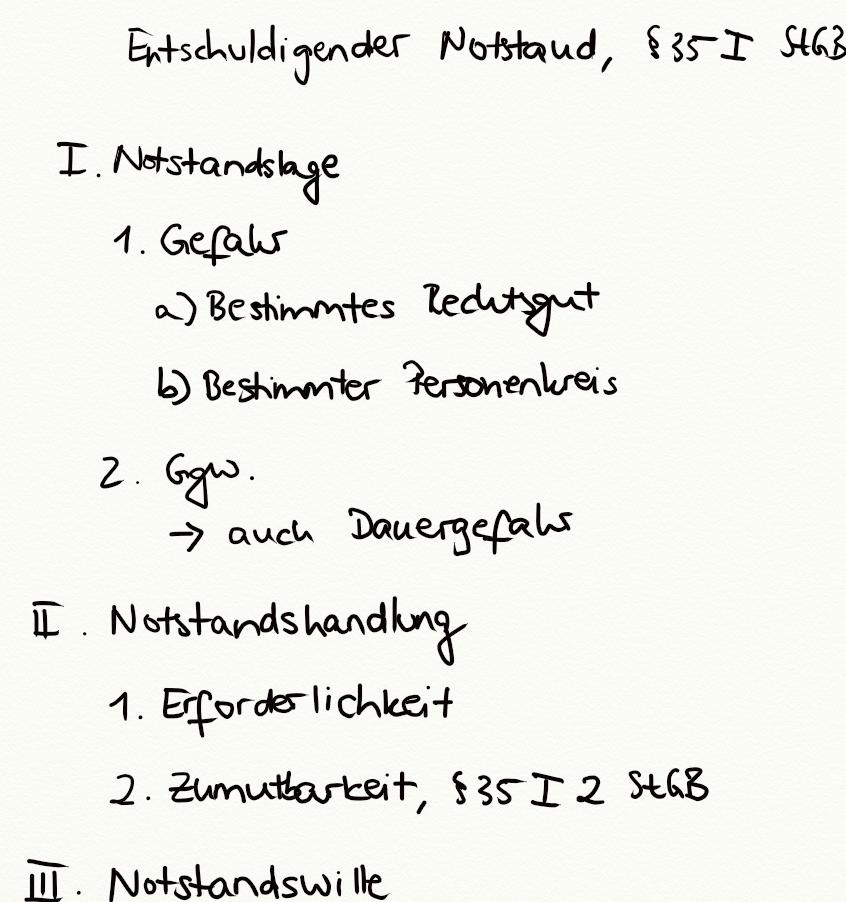 Entschuldigender Notstand, § 35 I StGB
I. Notstandslage
1. Gefahr
a) Bestimmtes Rechtsgut
b) Bestimmter Personenkreis
2. Ggw.
→ auch Dauergefahr
II. Notstandshandlung
1. Erforderlichkeit
2. Zumutbarkeit, § 35 I 2 StGB
III. Notstandswille